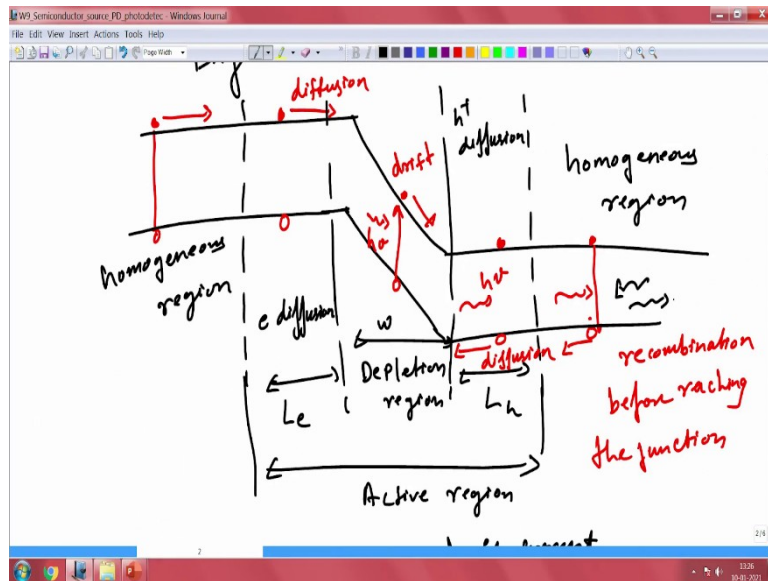 W9_Semiconductor_source_PD_photodetec - Windows Journal
File Edit View Insert Actions Tools Help
Page Width
diffusion
h+
diffusion
drift
homogeneous
region
homogeneous
region
e diffusion
W
Depletion
region
diffusion
Le
Lh
recombination
before raching
the junction
Active region
2/6
2
13:26
10-01-2021